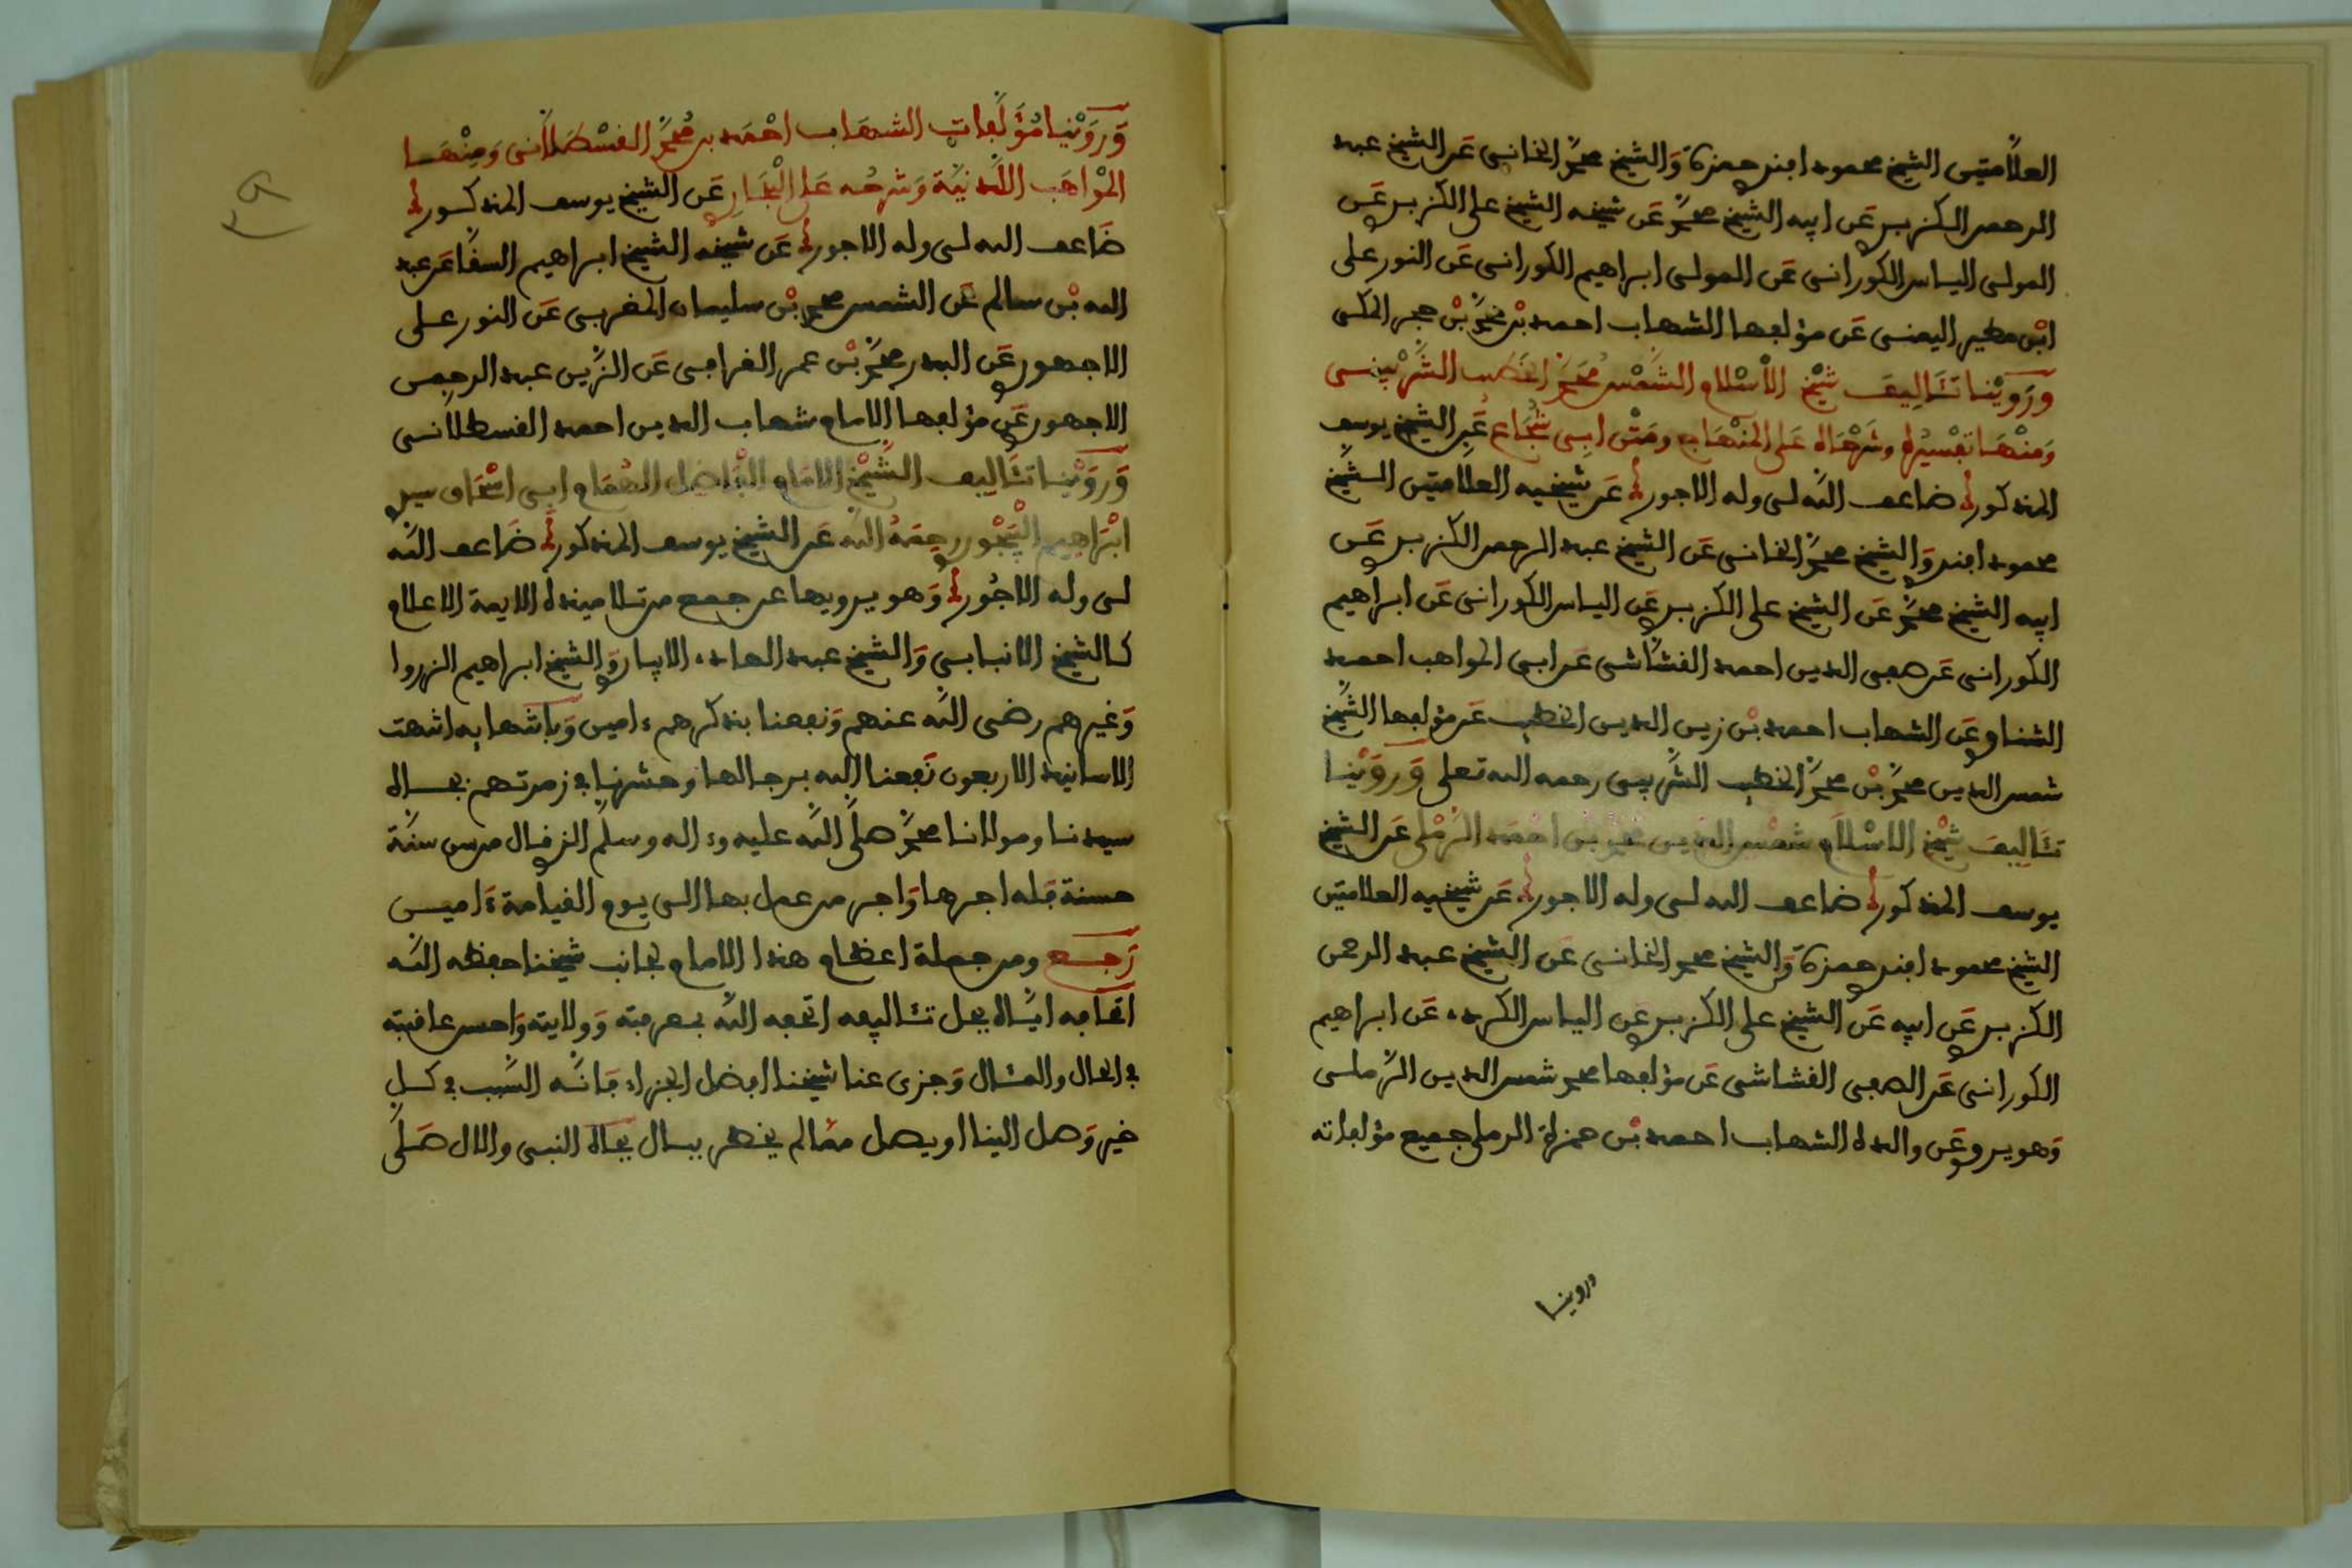 العلامتين الشيخ محمود افندي حمزة وَالشيخ محمد الخانى عَن الشيخ عبد
الرحمن الكزبري عَن ابيه الشيخ محمد عَن شيخه الشيخ علي الكزبري عَن
المولى الياس الكورانى عَن المولى ابراهيم الكورانى عَن النور على
ابْن مطير اليمنى عَن مؤلفها الشهاب احمد بْن محمد بْن حجر المكى
وَرَوَيْنا تَئَالِيفَ شَيْخ الاْسْلام الشَّمْس مُحَمَّد الخَطيب الشَّرْبينى
وَمِنْهَا تفْسيرُه وشَرْحَاه عَلى المنْهَاج ومَتْن ابِى شُجَاع عَنِ الشيخ يوسف
المذكور ضاعف اللّه لى وله الاجور عَن شيخيه العلامتين الشيخ
محمود افندي وَالشيخ محمد الخانى عَن الشيخ عبد الرحمن الكزبري عَن
ابيه الشيخ محمد عَن الشيخ علي الكزبري عَن الياس الكورانى عَن ابراهيم
الكورانى عَن صفى الدين احمد القشاشى عَن ابى المواهب احمد
الشناوي عَن الشهاب احمد بْن زين الدين الخطيب عَن مؤلفها الشيخ
شمس الدين محمد بْن محمد الخطيب الشربينى رحمه الله تعلى وَرَوَيْنا
تَئَالِيفَ شَيْخ الاسْلَام شمْس الدّين مُحَمد بْن احْمَد الرَّمْلي عَن الشيخ
يوسف المذكور ضاعف الله لى وله الاجور عَن شيخيه العلامتين
الشيخ محمود افندي حمزة وَالشيخ محمد الخانى عَن الشيخ عبد الرحمن
الكزبري عَن ابيه عَن الشيخ علي الكزبري عَن الياس الكردي عَن ابراهيم
الكورانى عَن الصفى القشاشى عَن مؤلفها محمد شمس الدين الرملى
وَهو يروي عَن والده الشهاب احمد بْن حمزة الرملي جميع مؤلفاته
وروينا
وَرَوَيْنا مُؤَلَّفات الشهَاب احْمَد بن مُحمَّد القسْطَلاَّنى وَمِنْهَا
المْوَاهَب اللَّدنيَّة وَشرحُه عَلى الْبُخَاري عَن الشيخ يوسف المذكور
ضَاعف الله لى وله الاجور عَن شيخه الشيخ ابراهيم السقا عَن عبد
الله بْن سالم عَن الشمس محمد بْن سليمان المغربى عَن النور على
الاجهوري عَن البدر محمد بْن عمر القرافى عَن الزين عبد الرحمن
الاجهوري عَن مؤلفها الامام شهاب الدين احمد القسطلانى
وَرَوَيْنا تئَاليف الشَّيْخ الامَام الْفَاضل الهُمَام ابى اسْحَاق سيدي
ابْرَاهيم الْبَيْجُوري رحمَهُ اللّه عَن الشيخ يوسف المذكور ضَاعف اللّه
لى وله الاجُور وَهو يرويها عن جمع من تلاميذه الايمة الاعلام
كالشيخ الانبابى وَالشيخ عبد الهادي الابياري وَالشيخ ابراهيم الزروا
وَغيرهم رضى اللّه عنهم وَنفعنا بذكرهم ءامين وَباشهابه انتهت
الاسانيد الاربعون نَفعنا اللّه برجالها وحشرنا في زمرتهم بجاه
سيدنا ومولانا محمد صلى اللّه عليه وءاله وسلم الذي قال من سن سنّة
حسنة فله اجرها وَاجر من عمل بها الى يوم القيامة ءَامين
رَجـع ومن جملة اعظام هذا الامام لجانب شيخنا حفظه اللّه
اتحافه ايّاه بجل تئاليفه اتحفه اللّه بمعرفته وَولايته وَاحسن عاقبته
في الحال والمئال وَجزى عنا شيخنا افضل الجزاء فَانّه السَّبب في كل
خير وَصل الينا او يصل ممّا لم يخطر ببال بجاه النبى والال صَلَّى